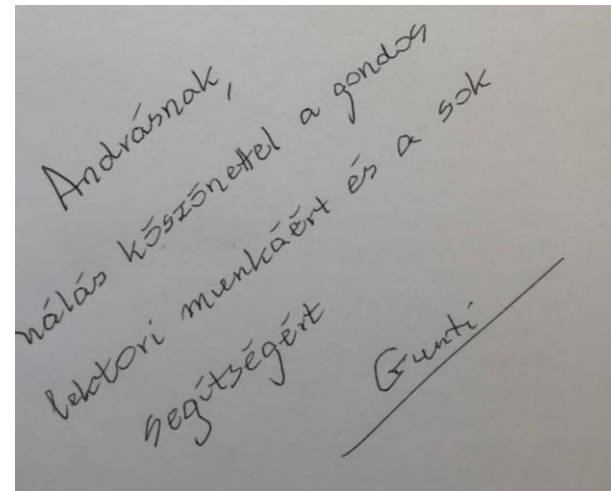 Andrásnak,
hálás köszönettel a gondos
lektori munkáért és a sok
segítségért
Gunti